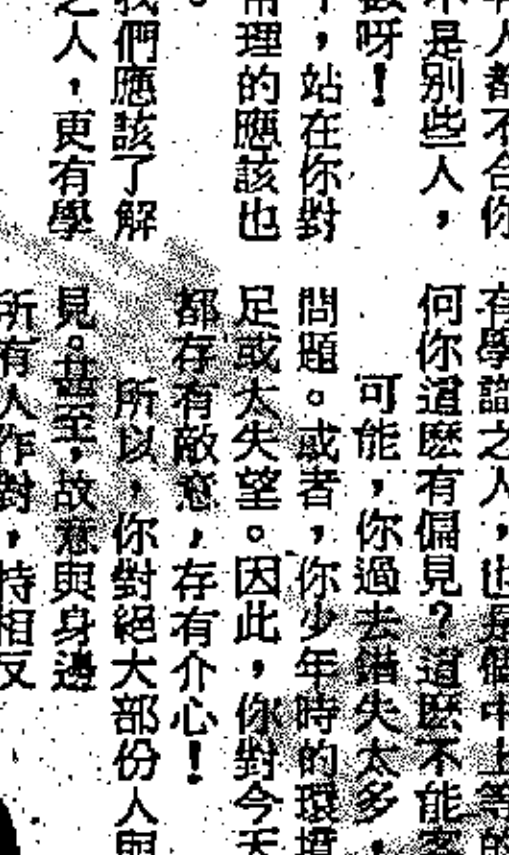 年人都不合你
不是別些人，
數呀！
，站在你對
常理的應該也
。
我們應該了解
之人，更有學
有學識之人，也是個中上等的
何你這麽有偏見？這麽不能容
可能，你過去錯失太多，
問題。或者，你少年時的環境
足或太失望。因此，你對今天
都存有敵意，存有介心！
所以，你對絕大部份人與
見。甚至，故意與身邊
所有人作對，持相反